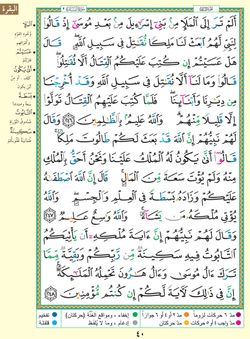 أَلَمْ تَرَ إِلَى ٱلْمَلَإِ مِنۢ بَنِىٓ إِسْرَٰٓءِيلَ مِنۢ بَعْدِ مُوسَىٰٓ إِذْ قَالُوا۟
لِنَبِىٍّ لَّهُمُ ٱبْعَثْ لَنَا مَلِكًا نُّقَـٰتِلْ فِى سَبِيلِ ٱللَّهِ ۖ قَالَ
هَلْ عَسَيْتُمْ إِن كُتِبَ عَلَيْكُمُ ٱلْقِتَالُ أَلَّا تُقَـٰتِلُوا۟ ۖ
قَالُوا۟ وَمَا لَنَآ أَلَّا نُقَـٰتِلَ فِى سَبِيلِ ٱللَّهِ وَقَدْ أُخْرِجْنَا
مِن دِيَـٰرِنَا وَأَبْنَآئِنَا ۖ فَلَمَّا كُتِبَ عَلَيْهِمُ ٱلْقِتَالُ تَوَلَّوْا۟
إِلَّا قَلِيلًا مِّنْهُمْ ۗ وَٱللَّهُ عَلِيمٌۢ بِٱلظَّـٰلِمِينَ ٢٤٦ وَقَالَ
لَهُمْ نَبِيُّهُمْ إِنَّ ٱللَّهَ قَدْ بَعَثَ لَكُمْ طَالُوتَ مَلِكًا ۚ
قَالُوٓا۟ أَنَّىٰ يَكُونُ لَهُ ٱلْمُلْكُ عَلَيْنَا وَنَحْنُ أَحَقُّ بِٱلْمُلْكِ
مِنْهُ وَلَمْ يُؤْتَ سَعَةً مِّنَ ٱلْمَالِ ۚ قَالَ إِنَّ ٱللَّهَ ٱصْطَفَىٰهُ
عَلَيْكُمْ وَزَادَهُۥ بَسْطَةً فِى ٱلْعِلْمِ وَٱلْجِسْمِ ۖ وَٱللَّهُ
يُؤْتِى مُلْكَهُۥ مَن يَشَآءُ ۚ وَٱللَّهُ وَٰسِعٌ عَلِيمٌ ٢٤٧
وَقَالَ لَهُمْ نَبِيُّهُمْ إِنَّ ءَايَةَ مُلْكِهِۦٓ أَن يَأْتِيَكُمُ
ٱلتَّابُوتُ فِيهِ سَكِينَةٌ مِّن رَّبِّكُمْ وَبَقِيَّةٌ مِّمَّا
تَرَكَ ءَالُ مُوسَىٰ وَءَالُ هَـٰرُونَ تَحْمِلُهُ ٱلْمَلَـٰٓئِكَةُ ۚ
إِنَّ فِى ذَٰلِكَ لَـَٔايَةً لَّكُمْ إِن كُنتُم مُّؤْمِنِينَ ٢٤٨
٤٠